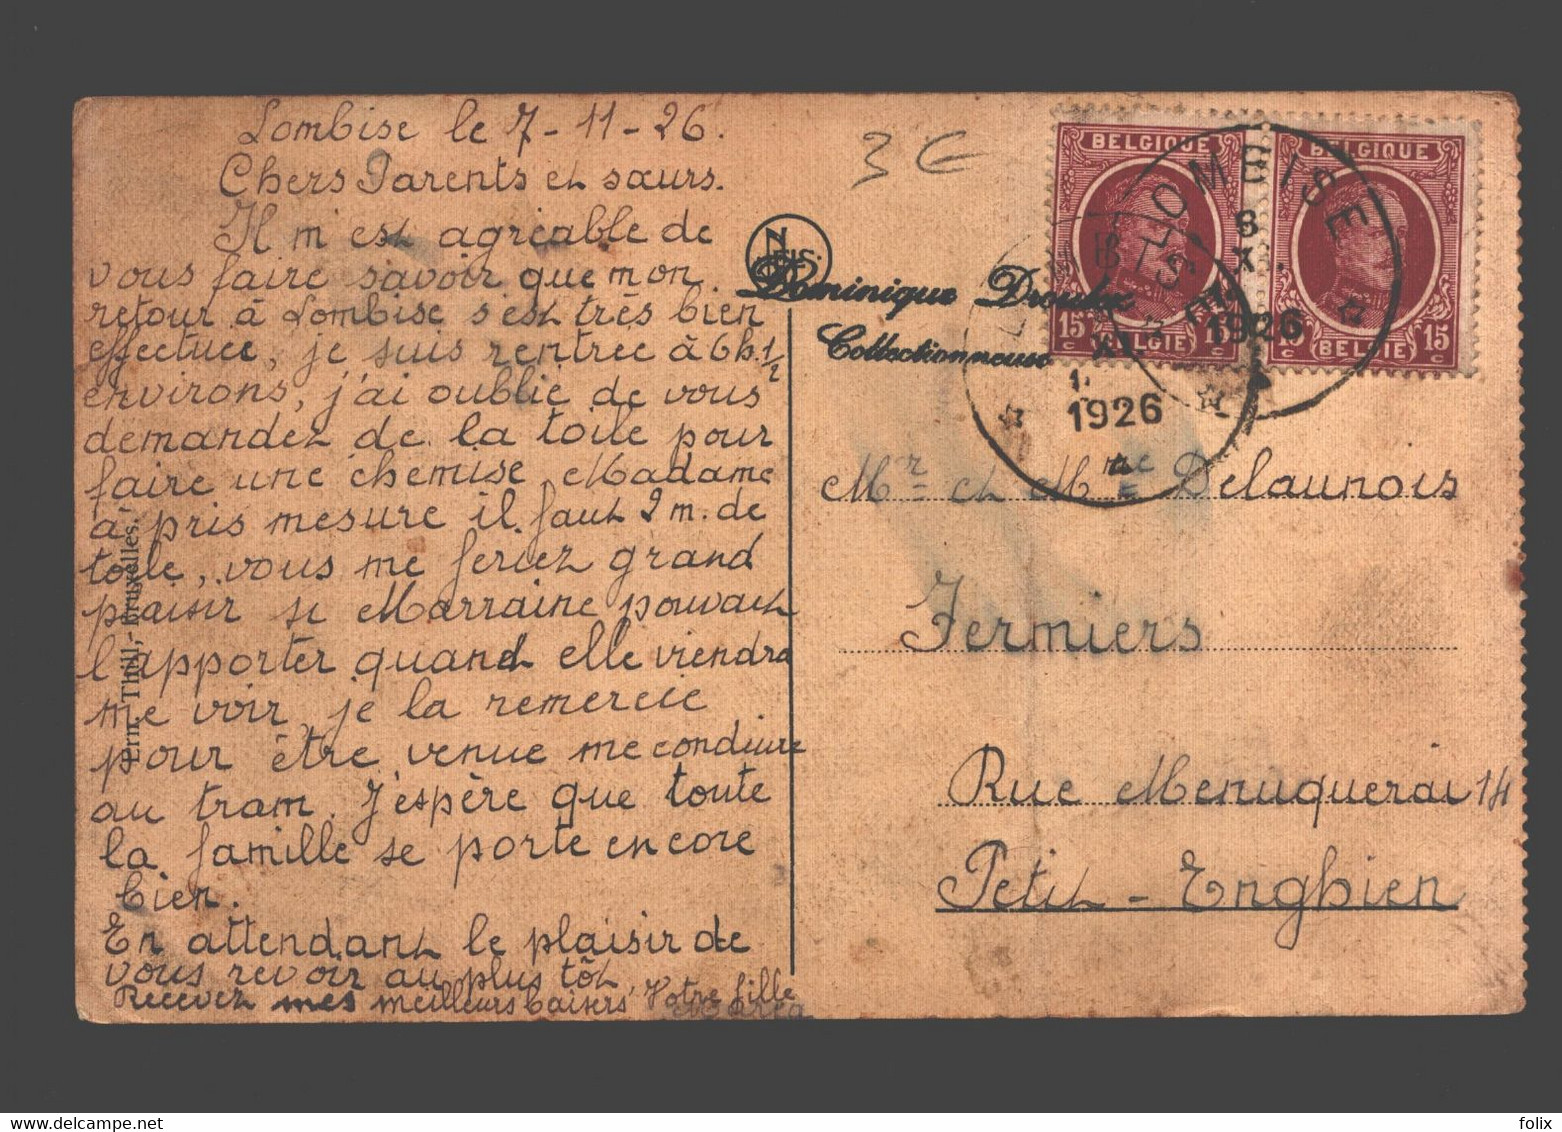 Lombise le 7-11-26.
Chers Parents et sœurs.
Il m'est agréable de
vous faire savoir que mon
retour à Lombise s'est très bien
effectuée, je suis rentrée à 6h.1/2
environs, j'ai oublié de vous
demandez de la toile pour
faire une chemise, Madame
a pris mesure il faut 2 m. de
toile, vous me feriez grand
plaisir si Marraine pouvait
l'apporter quand elle viendra
me voir, je la remercie
pour être venue me conduire
au tram. J'espère que toute
la famille se porte encore
bien.
En attendant le plaisir de
vous revoir au plus tôt,
Recevez mes meilleurs baisers, Votre fille
Maria
Ern. Thill, Bruxelles.
3 €
NELS.
Dominique
Collectionneuse
BELGIQUE
15 c BELGIË 15 c
BELGIQUE
15 c BELGIË 15 c
LOMBISE
8
XI.
1926
XI.
1926
Mr et Mme Delaunois
Fermiers
Rue Menuquerai 14
Petit-Enghien
folix